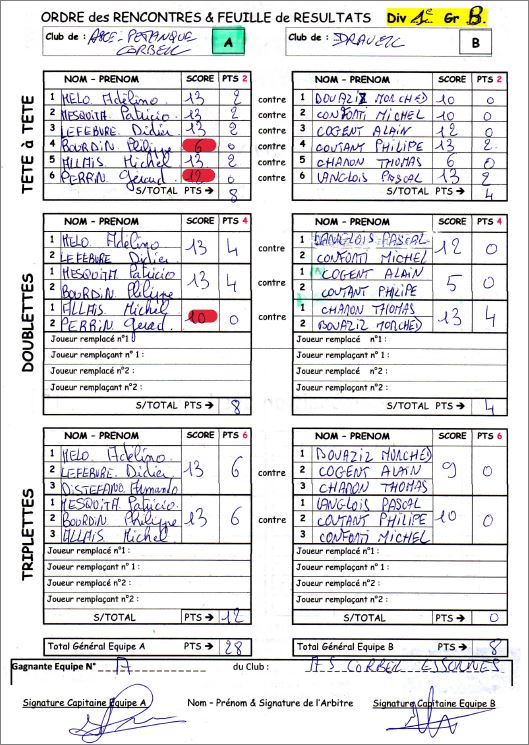 ORDRE des RENCONTRES & FEUILLE de RESULTATS Div 1e Gr B.
Club de : PETANQUE CORBEIL A Club de : DRAVEIL B
TETE à TETE
NOM – PRENOM SCORE PTS 2 NOM – PRENOM SCORE PTS 2
1 MELO Adélino 13 2 contre 1 DOUAZIZ MORCHED 10 0
2 MESQUITA Patricio 13 2 contre 2 CONFORTI MICHEL 10 0
3 LEFEBURE Didier 13 2 contre 3 COGENT ALAIN 12 0
4 BOURDIN Philippe 6 0 contre 4 COUTANT PHILIPE 13 2
5 ALLAIS Michel 13 2 contre 5 CHARON THOMAS 6 0
6 PERRIN Gérard 12 0 contre 6 LANGLOIS PASCAL 13 2
S/TOTAL PTS → 8 S/TOTAL PTS → 4
DOUBLETTES
NOM – PRENOM SCORE PTS 4 NOM – PRENOM SCORE PTS 4
1 MELO Adelino 13 4 contre 1 LANGLOIS PASCAL 12 0
2 LEFEBURE Didier 2 CONFORTI MICHEL
1 MESQUITA Patricio 13 4 contre 1 COGENT ALAIN 5 0
2 BOURDIN Philippe 2 COUTANT PHILIPE
1 ALLAIS Michel 10 0 contre 1 CHARON THOMAS 13 4
2 PERRIN Gerard 2 DOUAZIZ MORCHED
Joueur remplacé n°1 Joueur remplacé n°1 :
Joueur remplaçant n°1 : Joueur remplaçant n°1 :
Joueur remplacé n°2 : Joueur remplacé n°2 :
Joueur remplaçant n°2 : Joueur remplaçant n°2 :
S/TOTAL PTS → 8 S/TOTAL PTS → 4
TRIPLETTES
NOM – PRENOM SCORE PTS 6 NOM – PRENOM SCORE PTS 6
1 MELO Adelino 1 DOUAZIZ MORCHED
2 LEFEBURE Didier 13 6 contre 2 COGENT ALAIN 9 0
3 DISTEFANO Armando 3 CHARON THOMAS
1 MESQUITA Patricio 1 LANGLOIS PASCAL
2 BOURDIN Philippe 13 6 contre 2 COUTANT PHILIPE 10 0
3 ALLAIS Michel 3 CONFORTI MICHEL
Joueur remplacé n°1 : Joueur remplacé n°1 :
Joueur remplaçant n°1 : Joueur remplaçant n°1 :
Joueur remplacé n°2 : Joueur remplacé n°2 :
Joueur remplaçant n°2 : Joueur remplaçant n°2 :
S/TOTAL PTS → 12 S/TOTAL PTS → 0
Total Général Equipe A PTS → 28 Total Général Equipe B PTS → 8
Gagnante Equipe N° A du Club : AS CORBEIL ESSONNES
Signature Capitaine Equipe A Nom – Prénom & Signature de l'Arbitre Signature Capitaine Equipe B